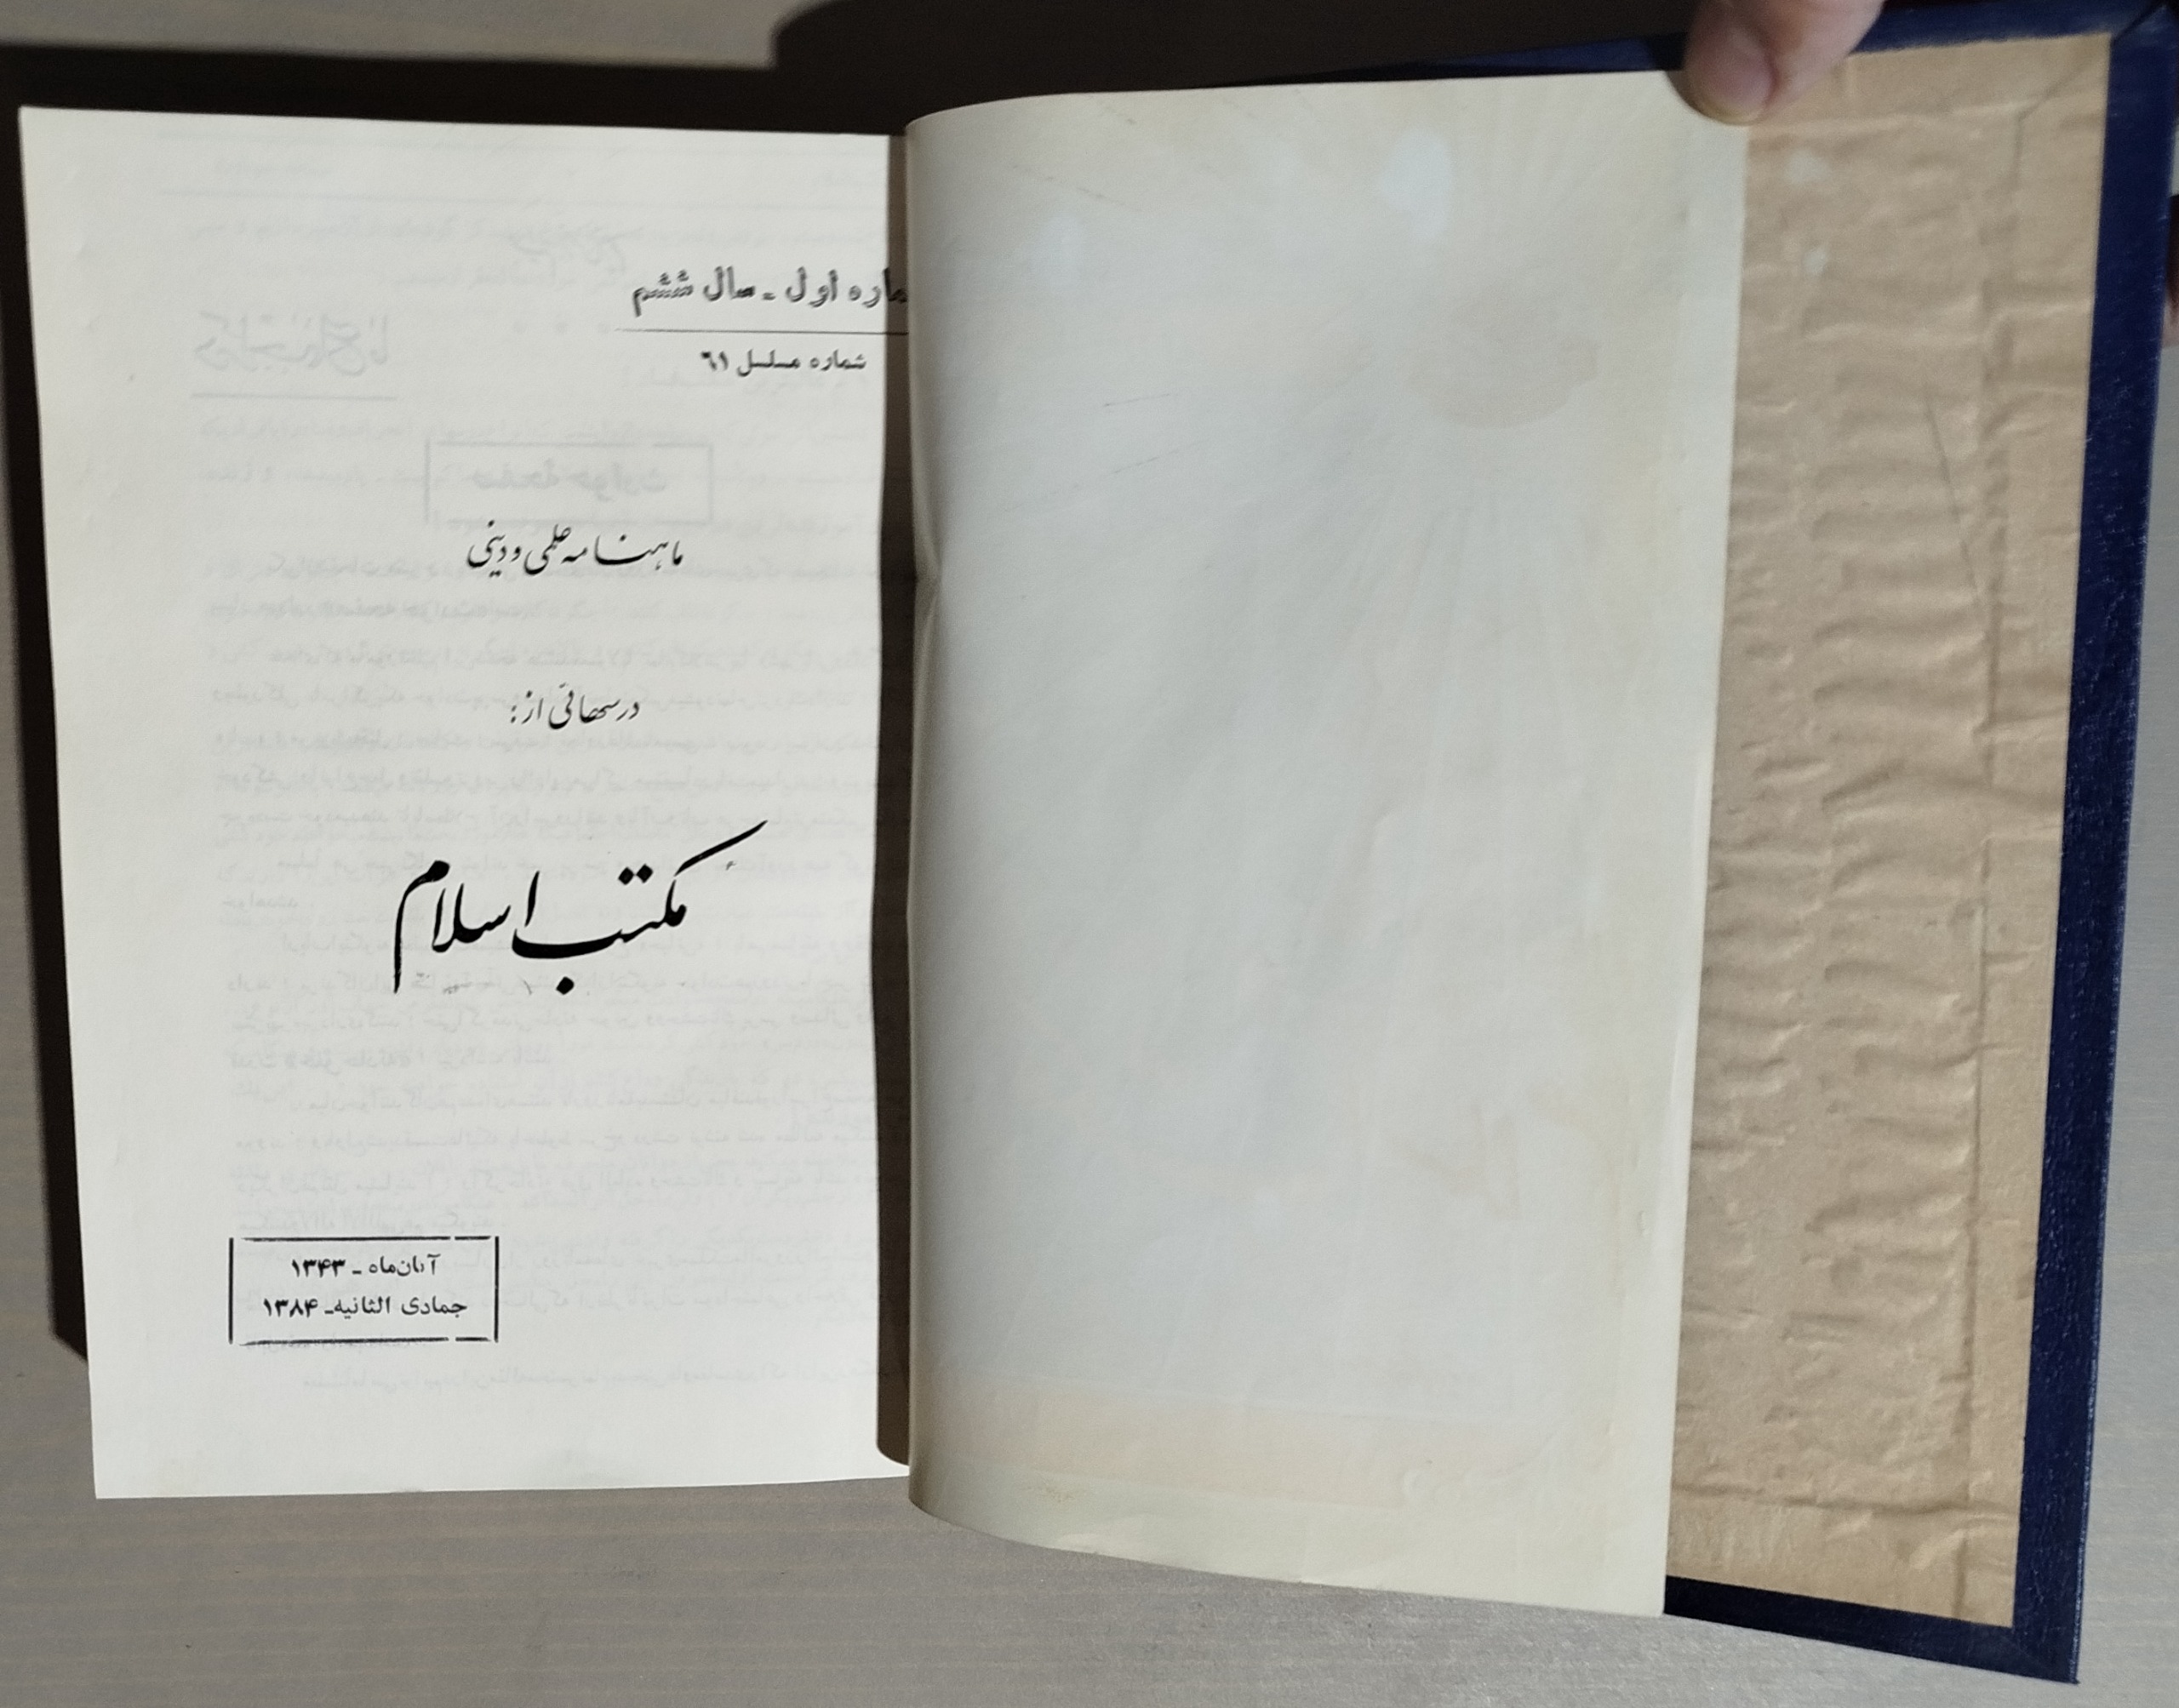 شماره اول ـ سال ششم
شماره مسلسل ٦١
ماهنامه علمی و دینی
درسهائی از:
مکتب اسلام
آبان‌ماه ـ ۱۳۴۳
جمادی الثانیه ـ ۱۳۸۴